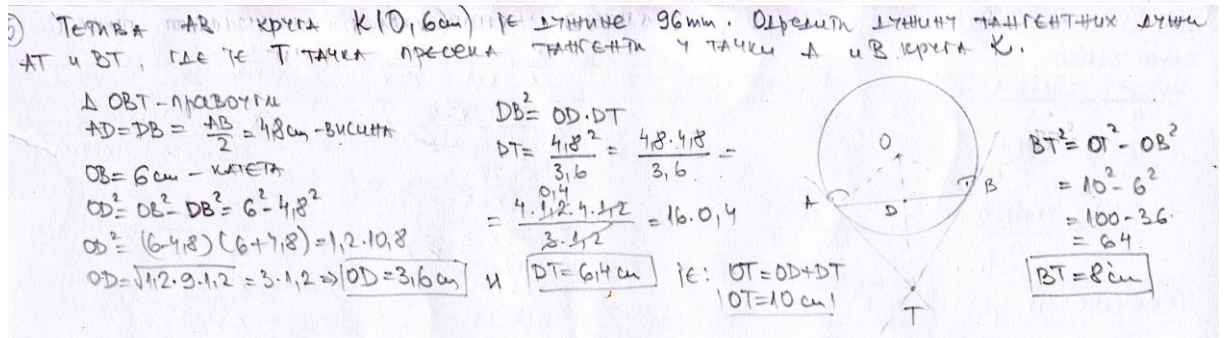 5) Тетива АВ круга K(O, 6cm) је дужине 96mm. Одредити дужину тангентних дужи
АТ и ВТ, где је Т тачка пресека тангенти у тачки А и В круга K.
Δ OBT - правоугли
AD=DB= AB/2 = 4,8cm - висина
OB= 6cm - катета
OD²= OB²- DB²= 6²- 4,8²
OD²= (6-4,8)(6+4,8)=1,2·10,8
OD=√1,2·9·1,2 = 3·1,2 ⇒ OD=3,6cm и
DB²= OD·DT
DT= 4,8²/3,6 = 4,8·4,8/3,6 =
0,4
= 4·1,2·4·1,2/3·1,2 = 16·0,4
DT= 6,4cm је: OT=OD+DT
OT=10cm
O
A
B
D
T
BT²= OT²- OB²
= 10²- 6²
= 100-36
= 64
BT=8cm